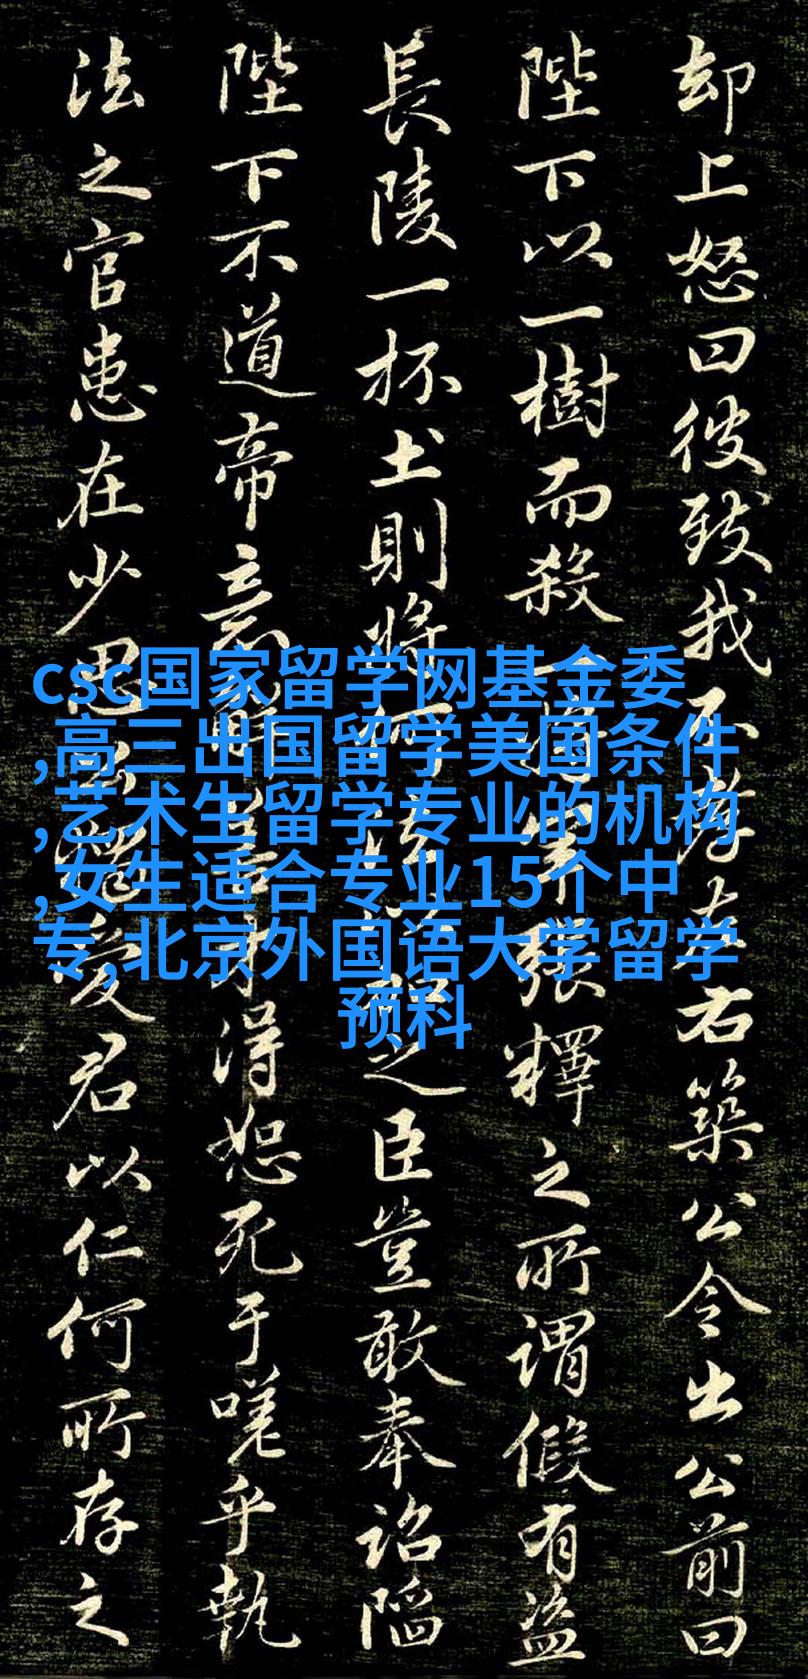 却上怒曰彼致我不孝左右築公令出公前曰
陛下以一樹而殺張釋之所謂假有盜
長陵一抔土則將何之臣豈敢奉詔陷
陛下不道帝意解得恕死于嗟乎執
法之官患在少恩愛君以仁何所存之
csc国家留学网基金委
,高三出国留学美国条件
,艺术生留学专业的机构
,女生适合专业15个中
专,北京外国语大学留学
预科